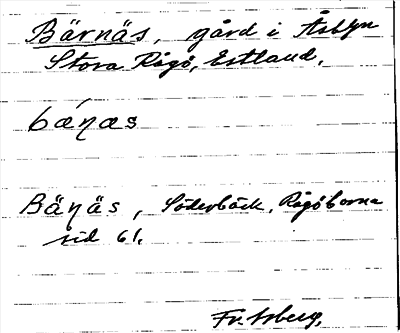 Bärnäs, gård i Åsbyn
Stora Rågö, Estland.
bǽɳæs
Bäṇäs, Söderbäck, Rågöborna
sid 61.